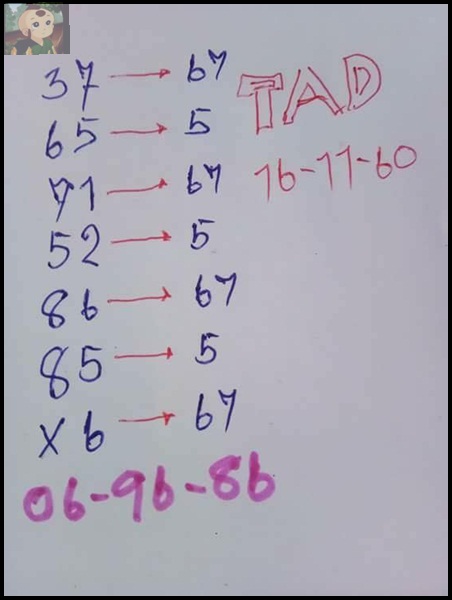 37 → 67
TAD
65 → 5
71 → 67
16-11-60
52 → 5
86 → 67
85 → 5
x6 → 67
06-96-86